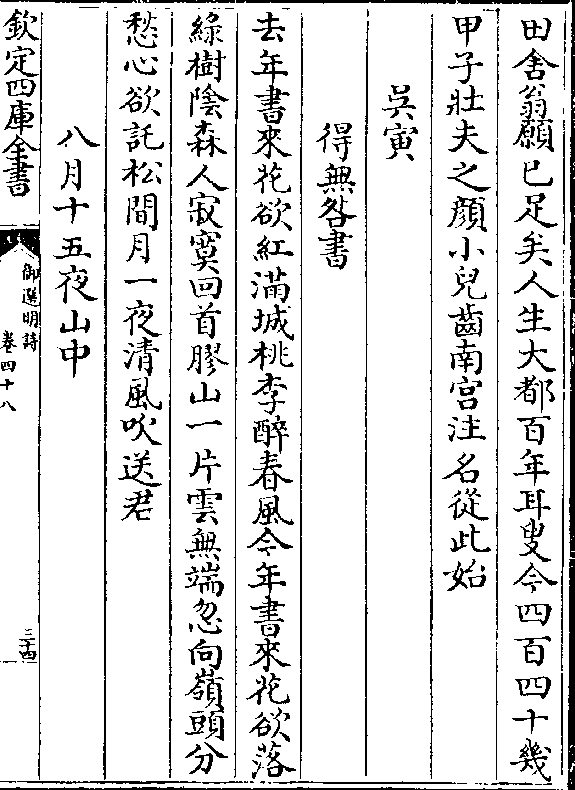 田舍翁願已足矣人生大都百年耳叟今四百四十幾
甲子壯夫之顔小兒齒南宫注名從此始
吳寅
得無咎書
去年書來花欲紅滿城桃李醉春風今年書來花欲落
綠樹陰森人寂寞回首膠山一片雲無端忽向嶺頭分
愁心欲託松間月一夜清風吹送君
八月十五夜山中
欽定四庫全書
御選明詩
卷四十八
三十四